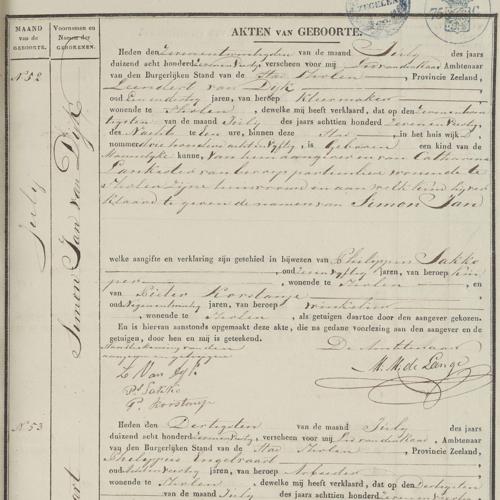 MAAND
van de
GEBOORTE.
Voornamen en
Namen der
GEBORENEN.
AKTEN VAN GEBOORTE.
N.º 52
July
Simon Jan van Dijk
Heden den Zevenentwintigsten van de maand July des jaars
duizend acht honderd zevenenveertig verscheen voor mij Ambtenaar
van den Burgerlijken Stand van de Stad Tholen, Provincie Zeeland,
Leendert van Dijk
oud Eenendertig jaren, van beroep Kleermaker
wonende te Tholen, dewelke mij heeft verklaard, dat op den Zevenentwin
tigsten van de maand July des jaars achttien honderd Zevenenveertig,
des Nachts te een ure, binnen deze Stad, in het huis wijk
nommer drie honderd achtenvijftig, is Geboren een kind van de
Mannelijke kunne, van hem aangever en van Catharina
van beroep particuliere wonende te
Tholen zijne huisvrouw en aan welk kind hij ver
klaard te geven de namen van Simon Jan
welke aangifte en verklaring zijn geschied in bijwezen van Philippus Sakko
, oud jaren, van beroep
, wonende te Tholen, en
van Pieter Korstanje
oud jaren, van beroep winkelier
, wonende te Tholen, als getuigen daartoe door den aangever gekozen.
En is hiervan aanstonds opgemaakt deze akte, die na gedane voorlezing aan den aangever en de
getuigen, door hen en mij is geteekend.
De Ambtenaar
L Van Dijk
M. M. de Lange
Ps. Sakko
P. Korstanje
N.º 53
Heden den Dertigsten van de maand July des jaars
duizend acht honderd zevenenveertig, verscheen voor mij Ambtenaar
van den Burgerlijken Stand van de Stad Tholen, Provincie Zeeland,
Philippus
oud jaren, van beroep Arbeider
wonende te Tholen, dewelke mij heeft verklaard, dat op den Dertigsten
van de maand July des jaars achttien honderd Zevenenveertig